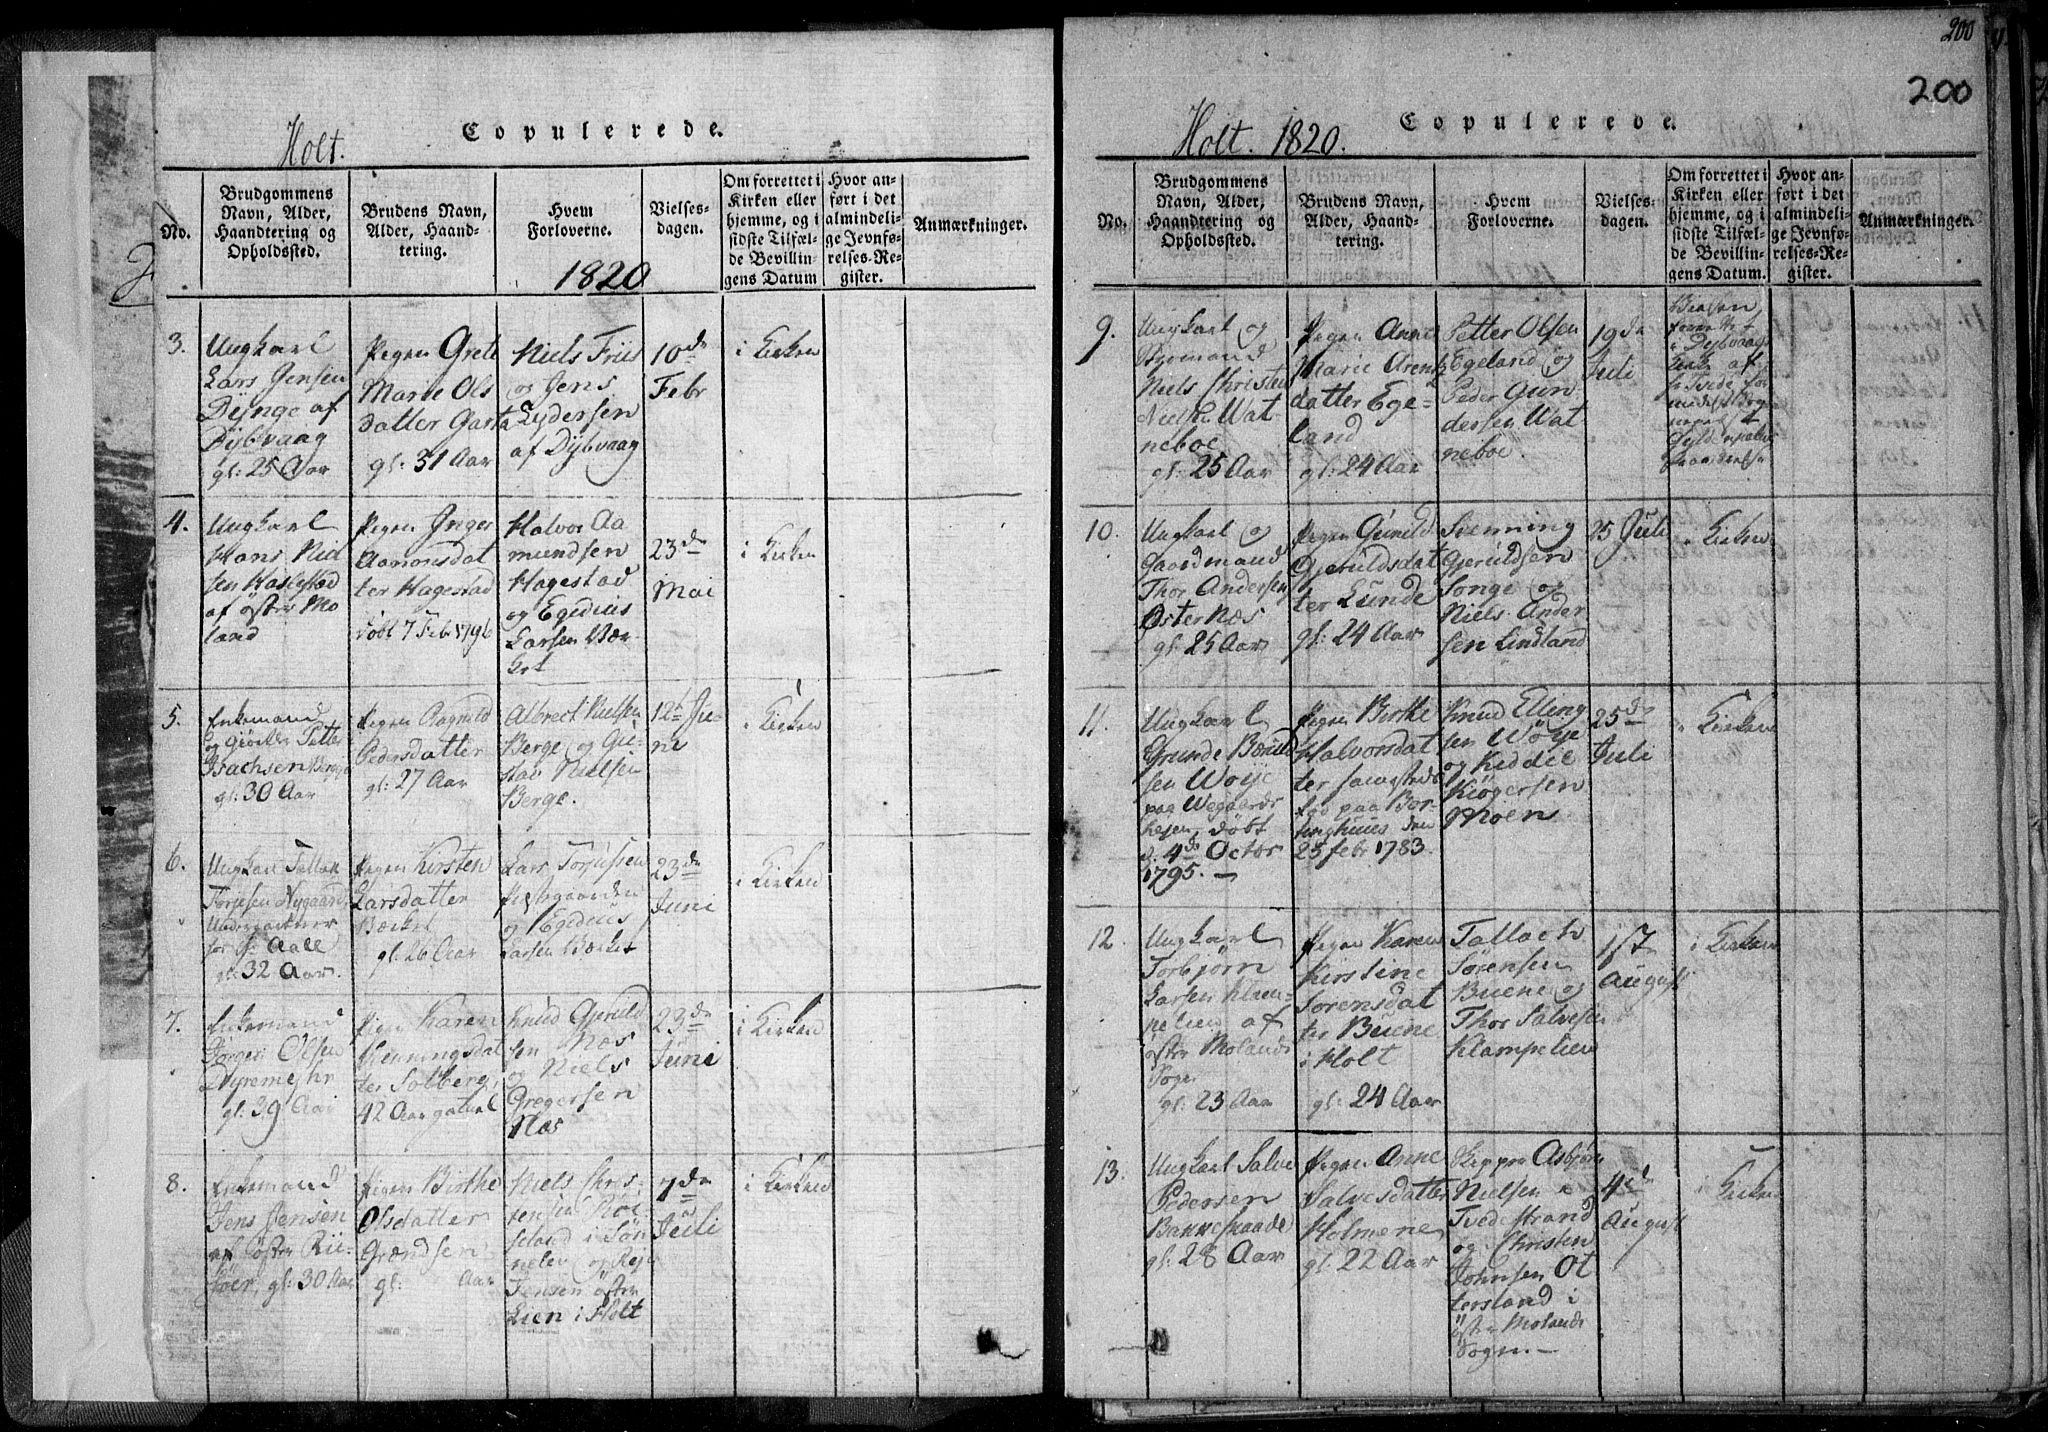 Holt.
Copulerede.
No.
Brudgommens
Navn, Alder,
Haandtering og
Opholdssted.
Brudens Navn,
Alder, Haand-
tering.
Hvem
Forloverne.
Vielses-
dagen.
Om forrettet i
Kirken eller
hjemme, og i
sidste Tilfæl-
de Bevillin-
gens Datum
Hvor an-
ført i det
almindeli-
ge Jevnfø-
relses-Re-
gister.
Anmærkninger.
1820
3.
Ungkarl
Lars Jensen
Dynge af
Dybvaag
gl: 25 Aar
Pigen Grete
Marie Ols
datter Garta
gl: 31 Aar
Niels Friis
og Jens
Lydersen
af Dybvaag
10de
Febr
i Kirken
4.
Ungkarl
Hans Niel
sen Haslestad
af östre Mo
land
Pigen Inger
Aamonsdat
ter Hagestad
døbt 7 Febr 1796
Halvor Aa
mundsen
Hagestad
og Egidius
Larsen Vær
ket
23de
Mai
i Kirken
5.
Enkemand
og Petter
Isachsen Berge
gl: 30 Aar
Pigen Ragnild
Pedersdatter
gl: 27 Aar
Albrect Nielsen
Berge og Gu
stav Nielsen
Berge.
12t Ju
ni
i Kirken
6.
Ungkarl Tallak
Torjesen Nygaard
for Hr Aall
gl: 32 Aar.
Pigen Kirsten
Larsdatter
Værket
gl: 26 Aar
Lars Torjussen
Præstgaarden
og Egidius
Larsen Værket
23de
Juni
i Kirken
7.
Enkemand
Jörgen Olsen
Dyremyhr
gl: 39 Aar
Pigen Karen
Henningsdat
ter Solberg,
42 Aar gamel
Knud Gjeruld
sen Næs
og Niels
Gregersen
Næs
23de
Juni
i Kirken
8.
Enkemand
Jens Jensen
af Söndre Rii-
söer, gl: 30 Aar
Pigen Birthe
Olsdatter
Grændsen
gl: Aar
Niels Chris
tensen Röi
seland i Sön
neløv og
Jensen östre
Lien i Holt
7de
Juli
i Kirken
200
200
Holt. 1820.
Copulerede.
No.
Brudgommens
Navn, Alder,
Haandtering og
Opholdssted.
Brudens Navn,
Alder, Haand-
tering.
Hvem
Forloverne.
Vielses-
dagen.
Om forrettet i
Kirken eller
hjemme, og i
sidste Tilfæl-
de Bevillin-
gens Datum.
Hvor an-
ført i det
almindeli-
ge Jevnfø-
relses-Re-
gister.
Anmærkninger.
9.
Ungkarl og
Bymand
Niels Christen
Niels: Wat
neboe
gl: 25 Aar
Pigen Anne
Marie Arents
datter Ege-
land
gl: 24 Aar
Petter Olsen
Egeland og
Peder Gun
dersen Wat
neboe.
19de
Juli
i Dybvaags
Kirke af
10.
Ungkarl og
Gaardmand
Thor Andersen
Öster Næs
gl: 25 Aar
Pigen Gunild
Gjeruldsdat
ter Lunde
gl: 24 Aar
Svenning
Gjeruldsen
Songe og
Niels Ander
sen Lindland
25 Juli
i Kirken
11.
Ungkarl
Grunde
sen Woye
paa Wegaards
heien, døbt
d. 4de Octor
1795. —
Pigen Birthe
Halvorsdat
ter sammesteds
fød paa Bor-
tinghuus den
23 febr 1783.
Knud Elling
sen Wöye
og Kiddil
Kiögersen
Moen
25de
Juli
i Kirken
12.
Ungkarl
Torbjörn
Larsen Klam-
pelien af
östre Molands
Sogn
gl: 23 Aar
Pigen Karen
Kirstine
Sörensdat
ter Buene
i Holt
gl: 24 Aar
Tallach
Sörensen
Buene og
Thor Salvesen
Klampelien
1st
August
i Kirken
13.
Ungkarl Salve
Pedersen
Bakkeskaade
gl: 28 Aar
Pigen Anne
Salvesdatter
Holmene
gl: 22 Aar
Skipper Asbjørn
Nielsen i
Tvedestrand
og Christen
Johnsen Ot
tersland i
östre Molands
Sogn. —
4de
August
i Kirken